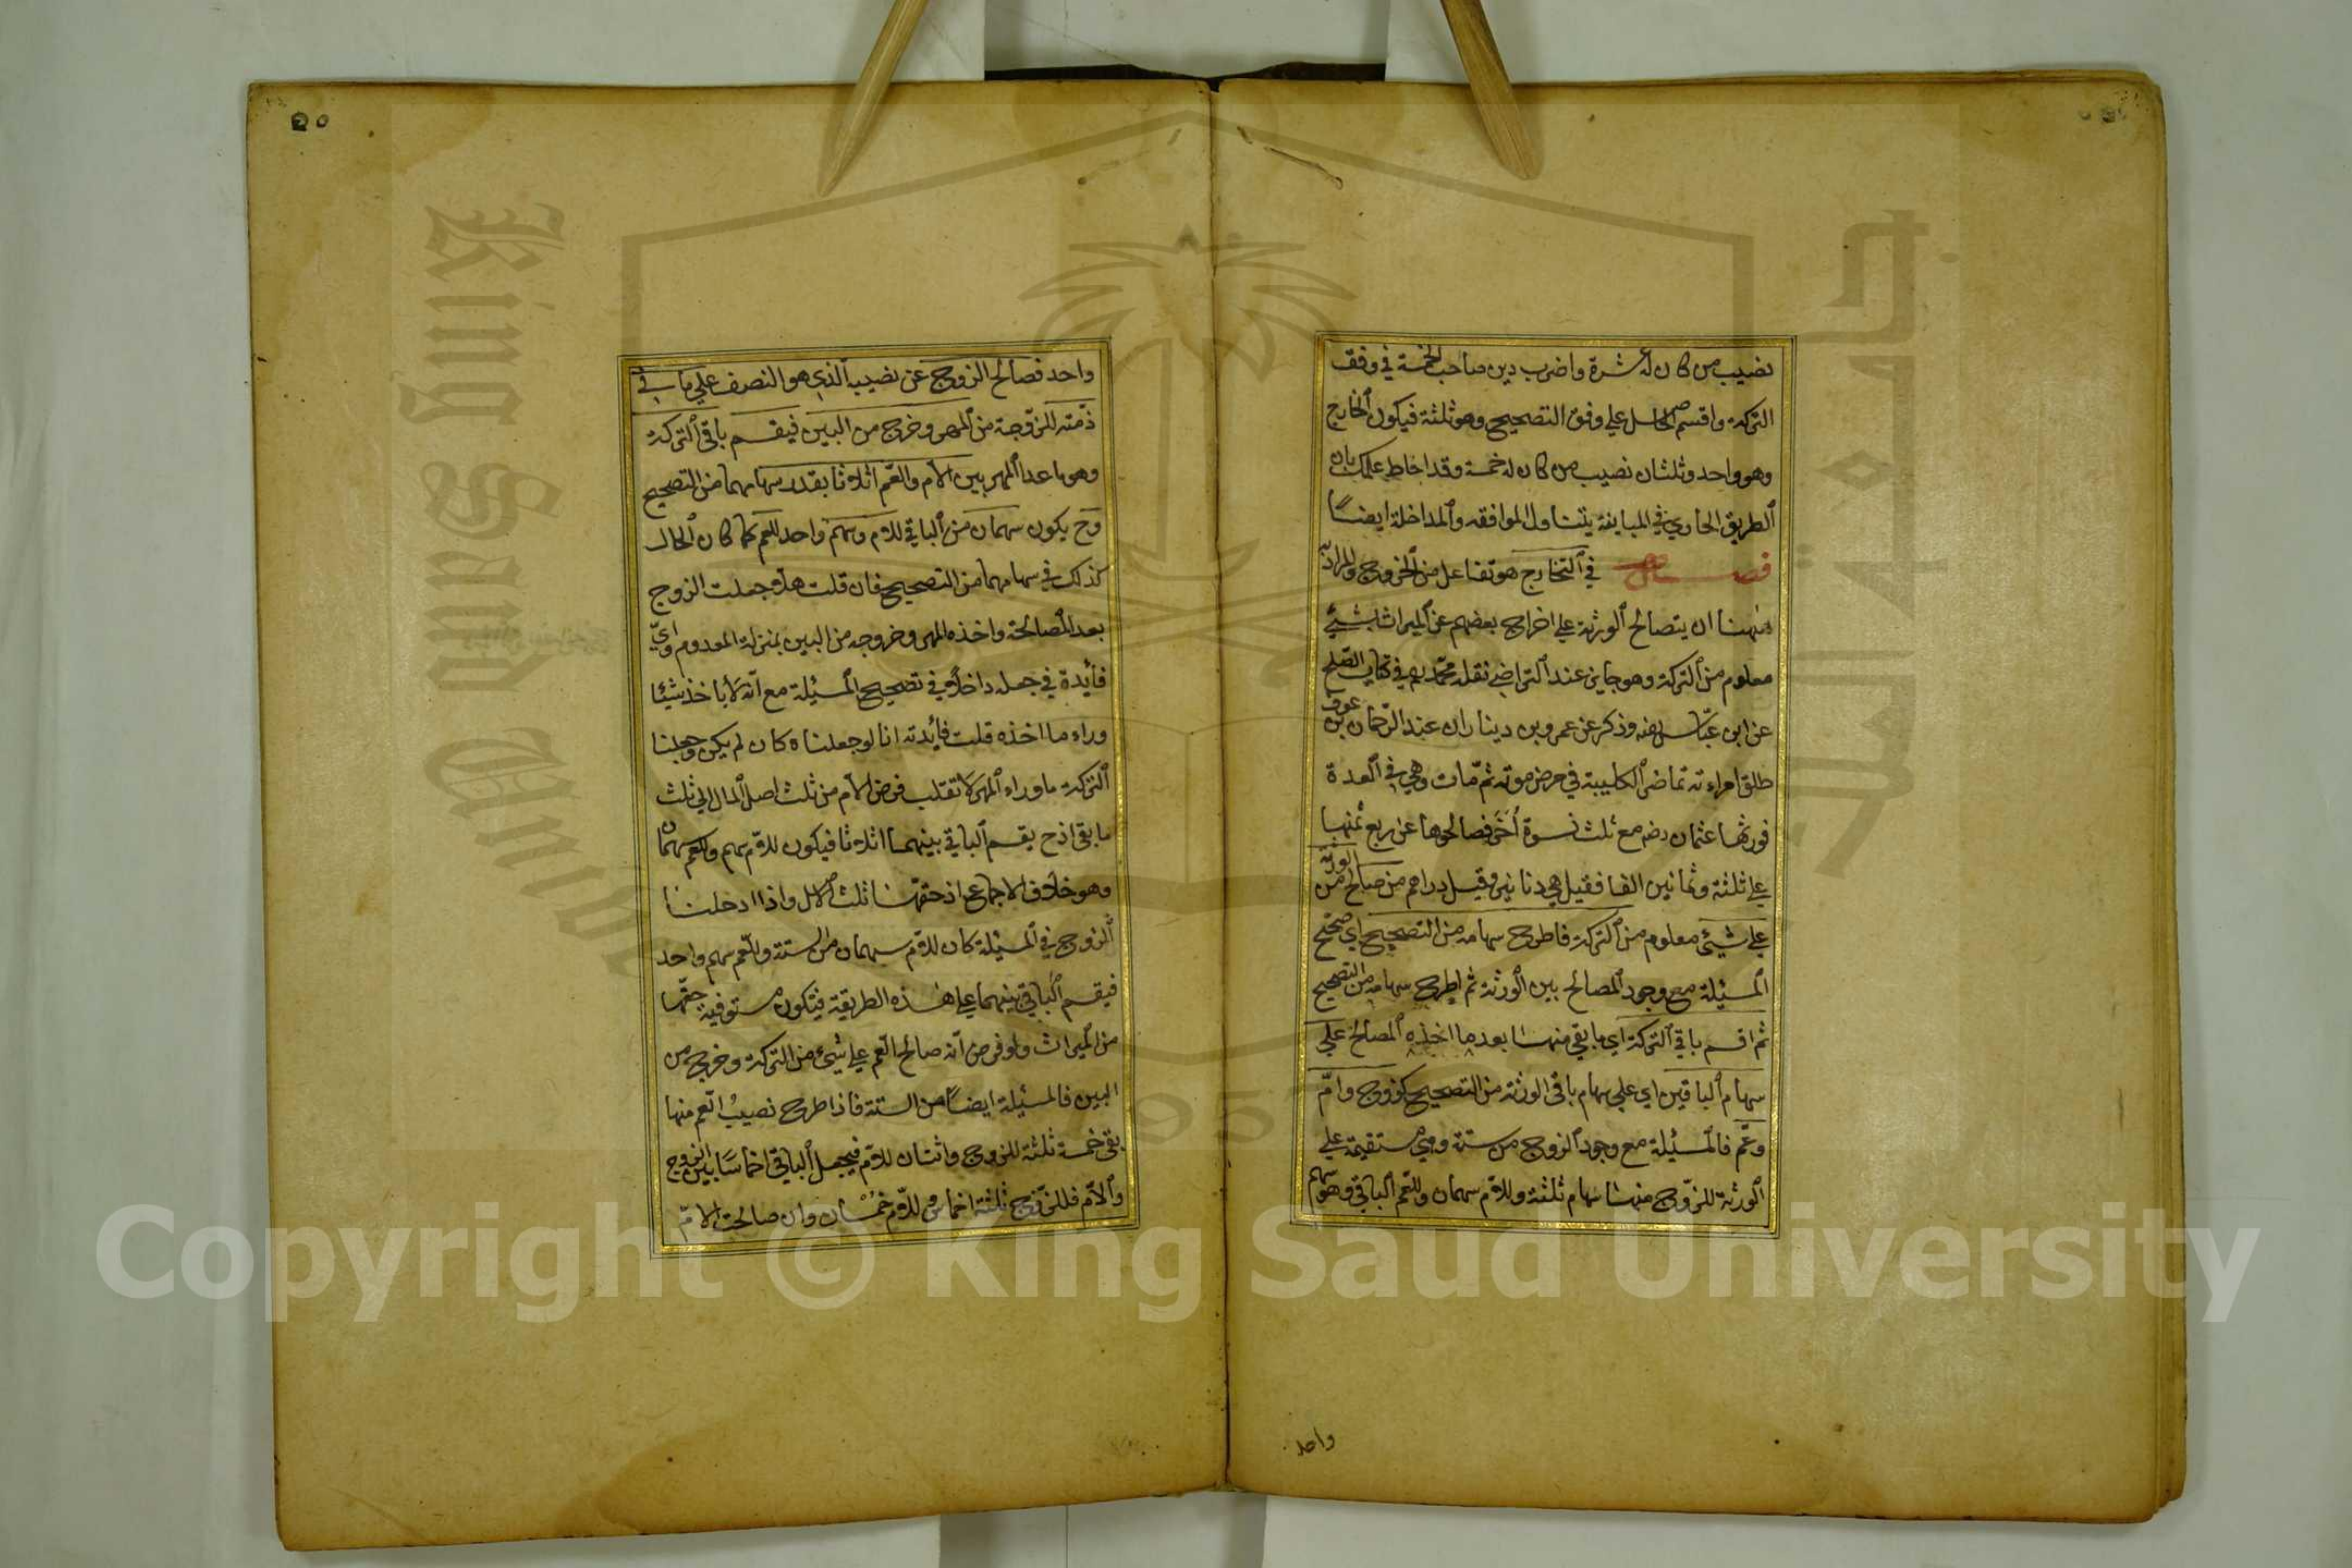 نصيب من كان له عشرة واضرب دين صاحب الخمسة في وفق
التركة واقسم الحاصل علي وفق التصحيح وهو ثلثة فيكون الخارج
وهو واحد وثلثان نصيب من كان له خمسة وقد احاط علمك بان
الطريق الجاري في المباينة يتناول الموافقه والمداخلة ايضاً
فصل في التخارج هو تفاعل من الخروج والمراد به
ههنا ان يتصالح الورثة علي اخراج بعضهم عن الميراث بشيئ
معلوم من التركة وهو جايز عند التراضي نقله محمد رح في كتاب الصلح
عن ابن عباس رضه وذكر عن عمرو بن دينار ان عبد الرحمان بن عوف
طلق امراءته تماضر الكليبة في مرض موته ثم مات وهي في العدة
فورثها عثمان رضه مع ثلث نسوة أخر فصالحوها عن ربع ثمنها
علي ثلثة وثمانين الفا فقيل هي دنانير وقيل دراهم من صالح من الورثة
علي شيئ معلوم من التركة فاطرح سهامه من التصحيح اي صحح
المسئلة مع وجود المصالح بين الورثة ثم اطرح سهامه من التصحيح
ثم اقسم باقي التركة اي ما بقي منها بعد ما اخذه المصالح علي
سهام الباقين اي علي سهام باقي الورثة من التصحيح كزوج وام
وعم فالمسئلة مع وجود الزوج من ستة وهي مستقيمة علي
الورثة للزوج منها سهام ثلثة وللام سهمان وللعم الباقي وهو سهم
واحد
٥٠
واحد فصالح الزوج عن نصيبه الذي هو النصف علي ما في
ذمته للزوجة من المهر وخرج من البين فيقسم باقي التركة
وهو ما عدا المهر بين الام والعم اثلاثا بقدر سهامهما من التصحيح
وح يكون سهمان من الباقي للام وسهم واحد للعم كما كان الحال
كذلك في سهامهما من التصحيح فان قلت هلا جعلت الزوج
بعد المصالحة واخذه المهر وخروجه من البين بمنزلة المعدوم واي
فائدة في جعله داخلا في تصحيح المسئلة مع انه لا ياخذ شيئا
وراء ما اخذه قلت فائدته انا لو جعلناه كان لم يكن وجعلنا
التركة ما وراء المهر لا نقلب فرض الام من ثلث اصل المال الي ثلث
ما بقي اذ ح يقسم الباقي بينهما اثلاثا فيكون للام سهم وللعم سهمان
وهو خلاف الاجماع اذ حقها ثلث الاصل واذا ادخلنا
الزوج في المسئلة كان للام سهمان من الستة وللعم سهم واحد
فيقسم الباقي بينهما علي هذه الطريقة فتكون مستوفية حقها
من الميراث ولو فرض انه صالح العم علي شيئ من التركة وخرج من
البين فالمسئلة ايضاً من الستة فاذا طرح نصيب العم منها
بقي خمسة ثلثة للزوج واثنان للام فيجعل الباقي اخماساً بين الزوج
والام فللزوج ثلثة اخماس وللام خمسان وان صالحت الام
King Saud University
1957
Copyright © King Saud University